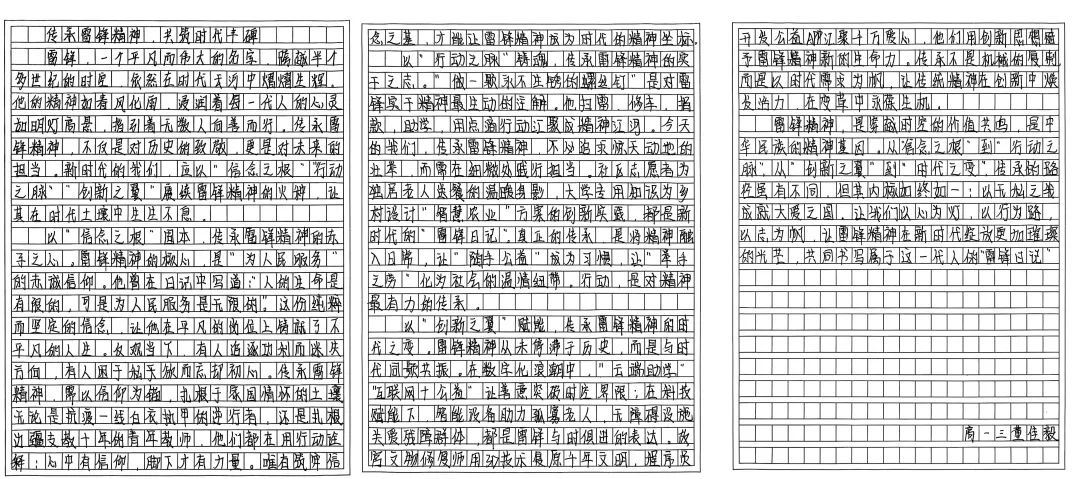 传承雷锋精神，共筑时代丰碑
雷锋，一个平凡而伟大的名字，跨越半个
多世纪的时度，依然在时代天河中熠熠生辉。
他的精神如春风化雨，浸润着每一代人的心灵
如明灯高悬，指引着无数人向善而行。传承雷
锋精神，不仅是对历史的致敬，更是对未来的
担当。新时代的我们，应以“信念之根”“行动
之脉”“创新之翼”赓续雷锋精神的火种，让
其在时代土壤中生生不息。
以“信念之根”固本，传承雷锋精神的赤
子之心。雷锋精神的核心，是“为人民服务”
的赤诚信仰。他曾在日记中写道：“人的生命是
有限的，可是为人民服务是无限的”这份纯粹
而坚定的信念，让他在平凡的岗位上铸就了不
平凡的人生。反观当下，有人追逐功利而迷失
方向，有人困于而忘却初心。传承雷锋
精神，需以信仰为锚，扎根于家国情怀的土壤
无论是抗疫一线白衣执甲的逆行者，还是扎根
边疆支教十年的青年教师，他们都在用行动诠
释：心中有信仰，脚下才有力量。唯有筑牢信
念之基，才能让雷锋精神成为时代的精神坐标。
以“行动之脉”铸魂，传承雷锋精神的实
干之志。“做一颗永不生锈的螺丝钉”是对雷
锋实干精神最生动的注解。他扫雷，修车，捐
款，助学，用点滴行动汇聚成精神江河。今天
的我们，传承雷锋精神，不必追求惊天动地的
壮举，而需在细微处践行担当。社区志愿者为
独居老人送餐的温暖身影，大学生用知识为乡
村设计“智慧农业”方案的创新实践，都是新
时代的“雷锋日记”。真正的传承，是将精神融
入日常，让“随手公益”成为习惯，让“举手
之劳”化为社会的温情纽带。行动，是对精神
最有力的传承。
以“创新之翼”赋能，传承雷锋精神的时
代之变。雷锋精神从未停滞于历史，而是与时
代同频共振。在数字化浪潮中，“云端助学”
“互联网+公益”让善意突破时空界限；在科技
赋能下，智能设备助力孤寡老人，无障碍设施
关爱残障群体，都是雷锋与时俱进的表达。故
宫文物修复师用3D技术复原千年文明，程序员
开发公益APP汇聚千万爱心，他们用创新思想赋
予雷锋精神新的生命力。传承不是机械的复制
而是以时代情怀为帆，让传统精神在创新中焕
发活力，在变革中永葆生机。
雷锋精神，是穿越时空的价值共鸣，是中
华民族的精神基因。从“信念之根”到“行动之
脉”，从“创新之翼”到“时代之变”，传承的路
径虽有不同，但其内核如终如一：以无私之我
成就大爱之国。让我们以心为灯，以行为路，
以志为帆，让雷锋精神在新时代绽放更加璀璨
的光芒，共同书写属于这一代人的“雷锋日记”
高一三董佳毅